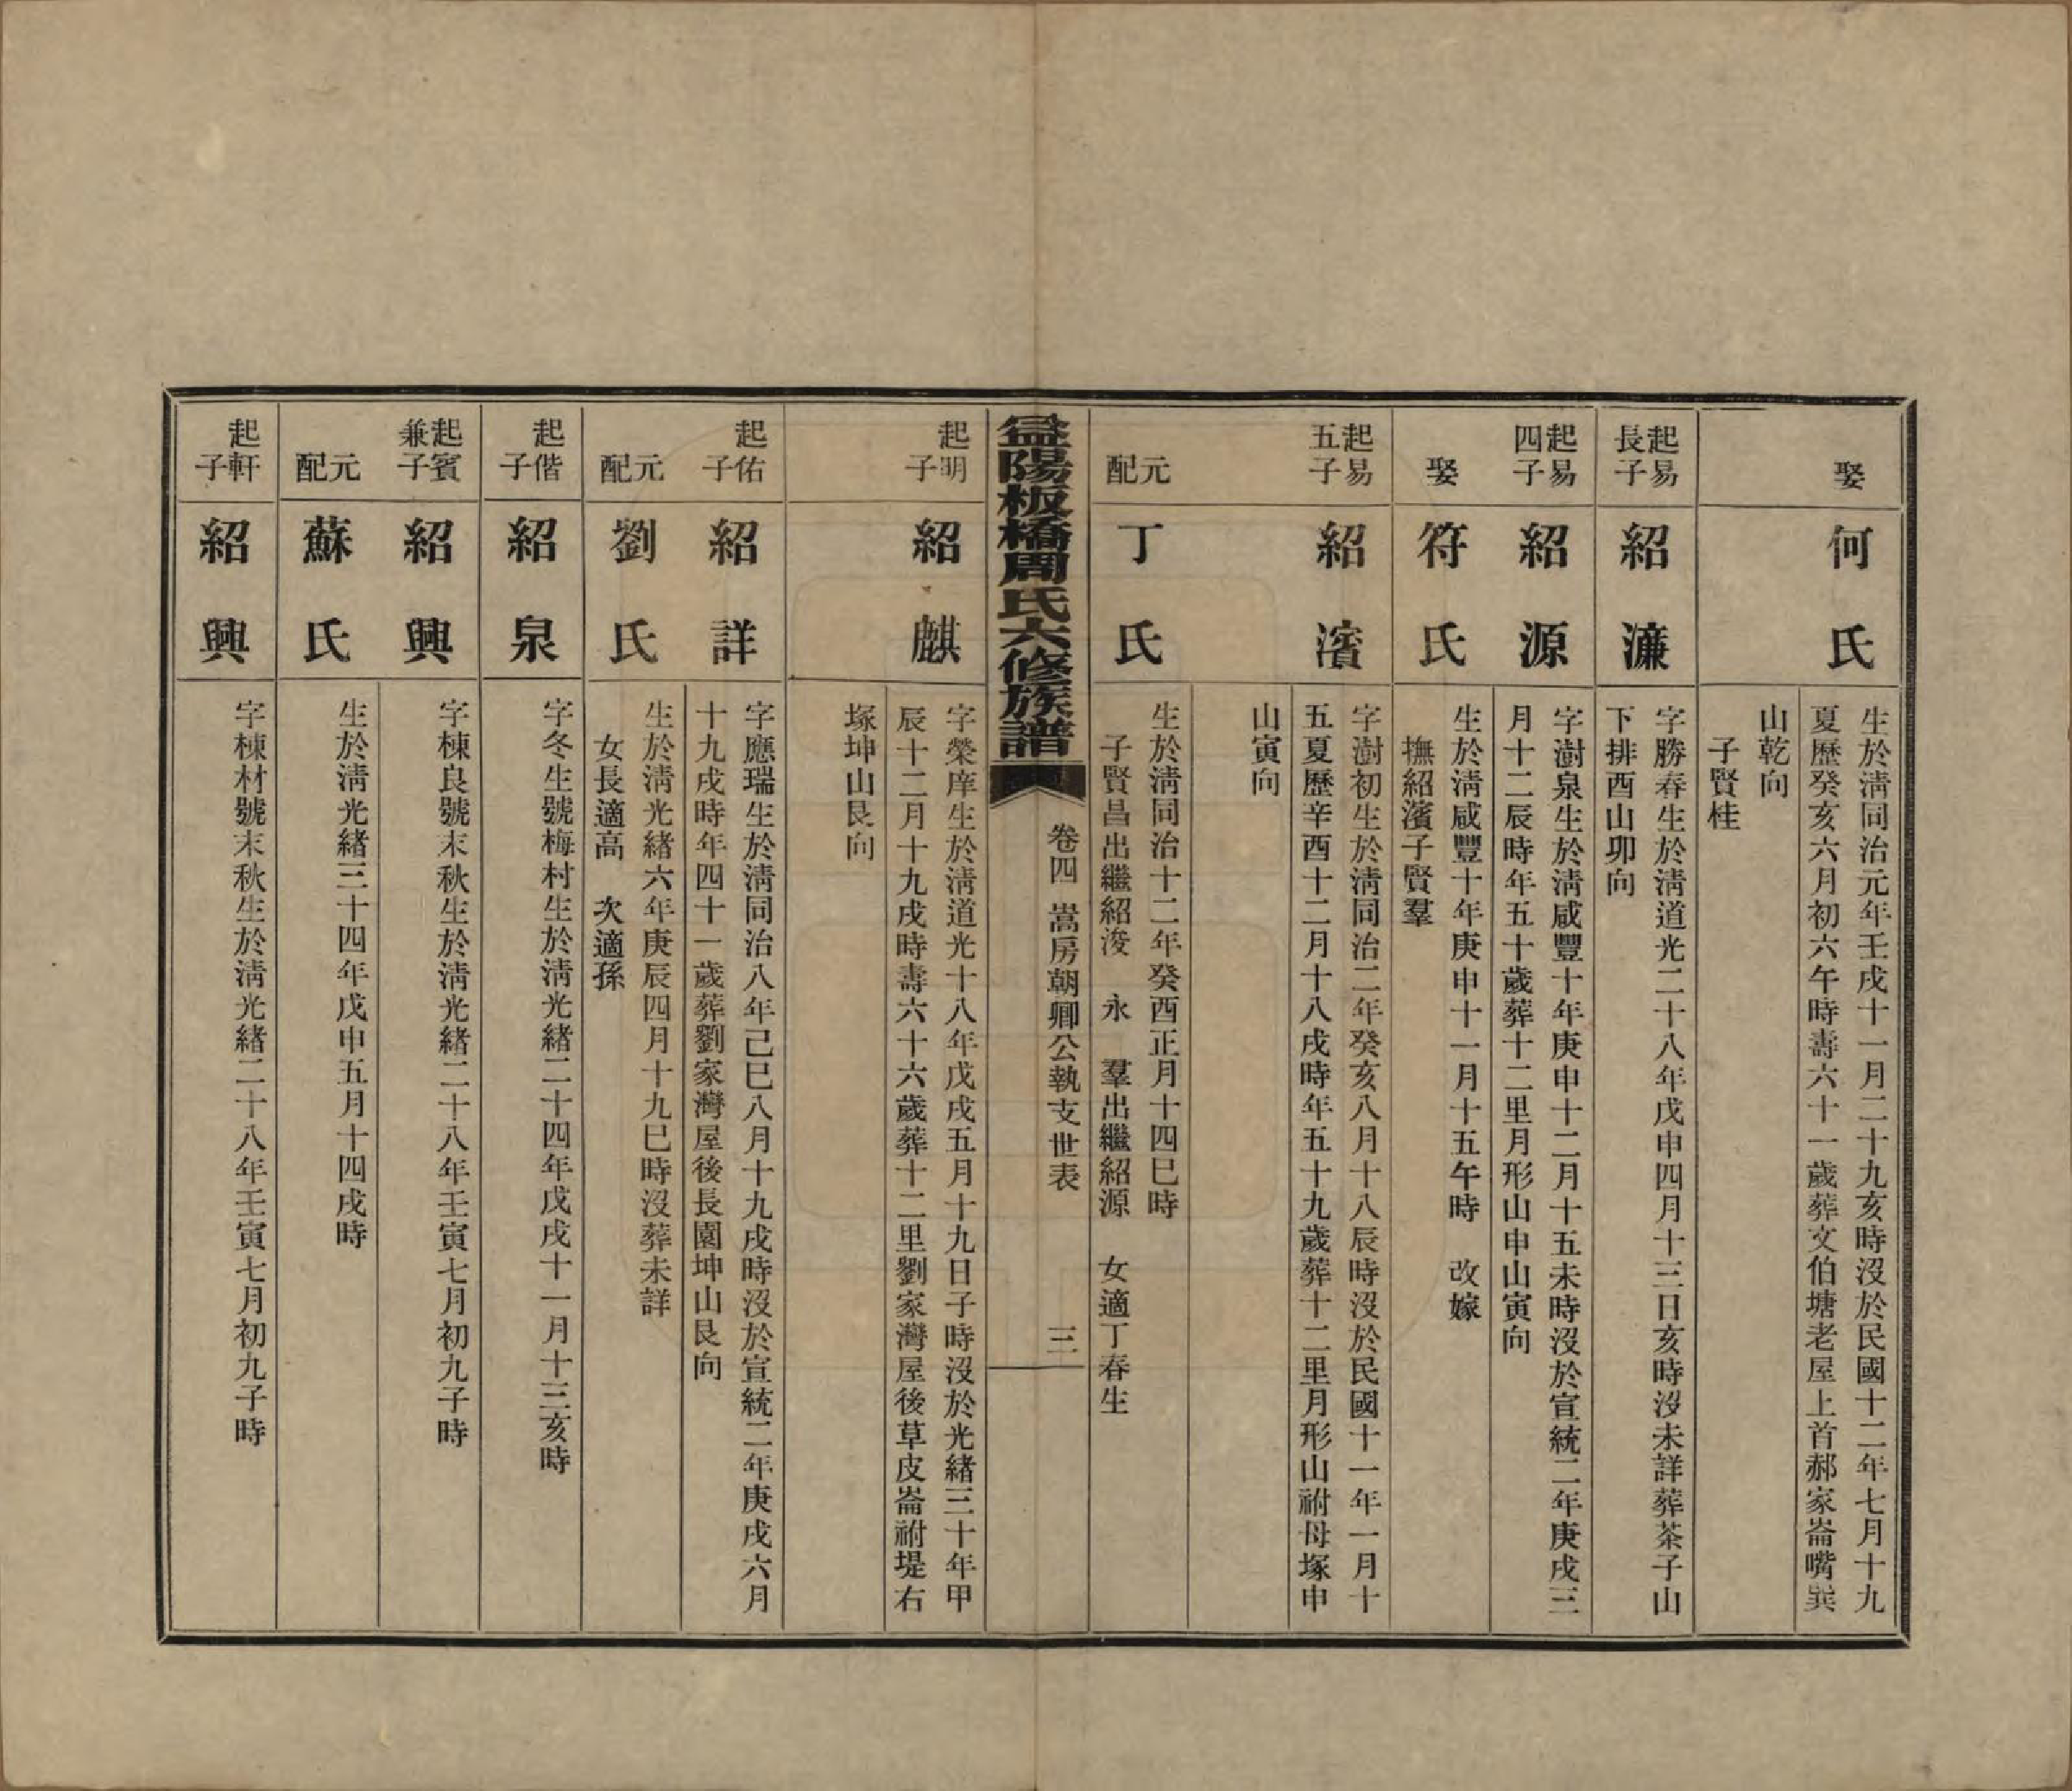 娶
何氏
生於淸同治元年壬戌十一月二十九亥時沒於民國十二年七月十九
夏歷癸亥六月初六午時壽六十一歲葬文伯塘老屋上首郝家崙嘴巽
山乾向
子賢桂
起易長子
紹濂
字勝春生於淸道光二十八年戊申四月十三日亥時沒未詳葬茶子山
下排酉山卯向
起易四子
紹源
字澍泉生於淸咸豐十年庚申十二月十五未時沒於宣統二年庚戌三
月十二辰時年五十歲葬十二里月形山申山寅向
娶
符氏
生於淸咸豐十年庚申十一月十五午時 改嫁
撫紹濱子賢羣
起易五子
紹濱
字澍初生於淸同治二年癸亥八月十八辰時沒於民國十一年一月十
五夏歷辛酉十二月十八戌時年五十九歲葬十二里月形山祔母塚申
山寅向
元配
丁氏
生於淸同治十二年癸酉正月十四巳時
子賢昌出繼紹浚 永 羣出繼紹源 女適丁春生
益陽板橋周氏六修族譜
卷四 嵩房朝卿公執支世表
三
起明子
紹麒
字榮庠生於淸道光十八年戊戌五月十九日子時沒於光緒三十年甲
辰十二月十九戌時壽六十六歲葬十二里劉家灣屋後草皮崙祔堤右
塚坤山艮向
起佑子
紹詳
字應瑞生於淸同治八年己巳八月十九戌時沒於宣統二年庚戌六月
十九戌時年四十一歲葬劉家灣屋後長園坤山艮向
元配
劉氏
生於淸光緒六年庚辰四月十九巳時沒葬未詳
女長適高 次適孫
起偕子
紹泉
字冬生號梅村生於淸光緒二十四年戊戌十一月十三亥時
起賓兼子
紹興
字棟良號末秋生於淸光緒二十八年壬寅七月初九子時
元配
蘇氏
生於淸光緒三十四年戊申五月十四戌時
起軒子
紹興
字棟材號末秋生於淸光緒二十八年壬寅七月初九子時